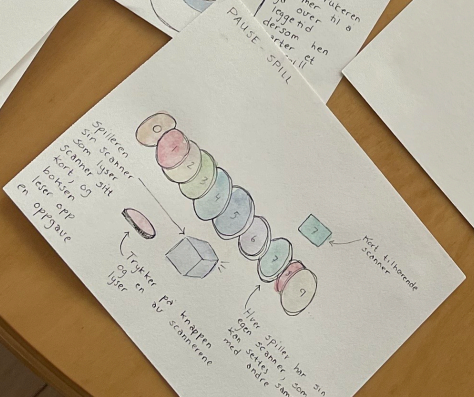 keren
mer til å
over
leggend
dersom hen
et
PAUSE-SPILL
Spilleren
sin scanner
som lyser
scanner sitt
kort, og
boksen
leser opp
en oppgave
0
1
2
3
4
5
6
7
9
7
Kort tilhørende
scanner
Trykker på knappen
og en av scannerene
lyser
Hver spiller har sin
egen scanner, som
kan settes
med andre